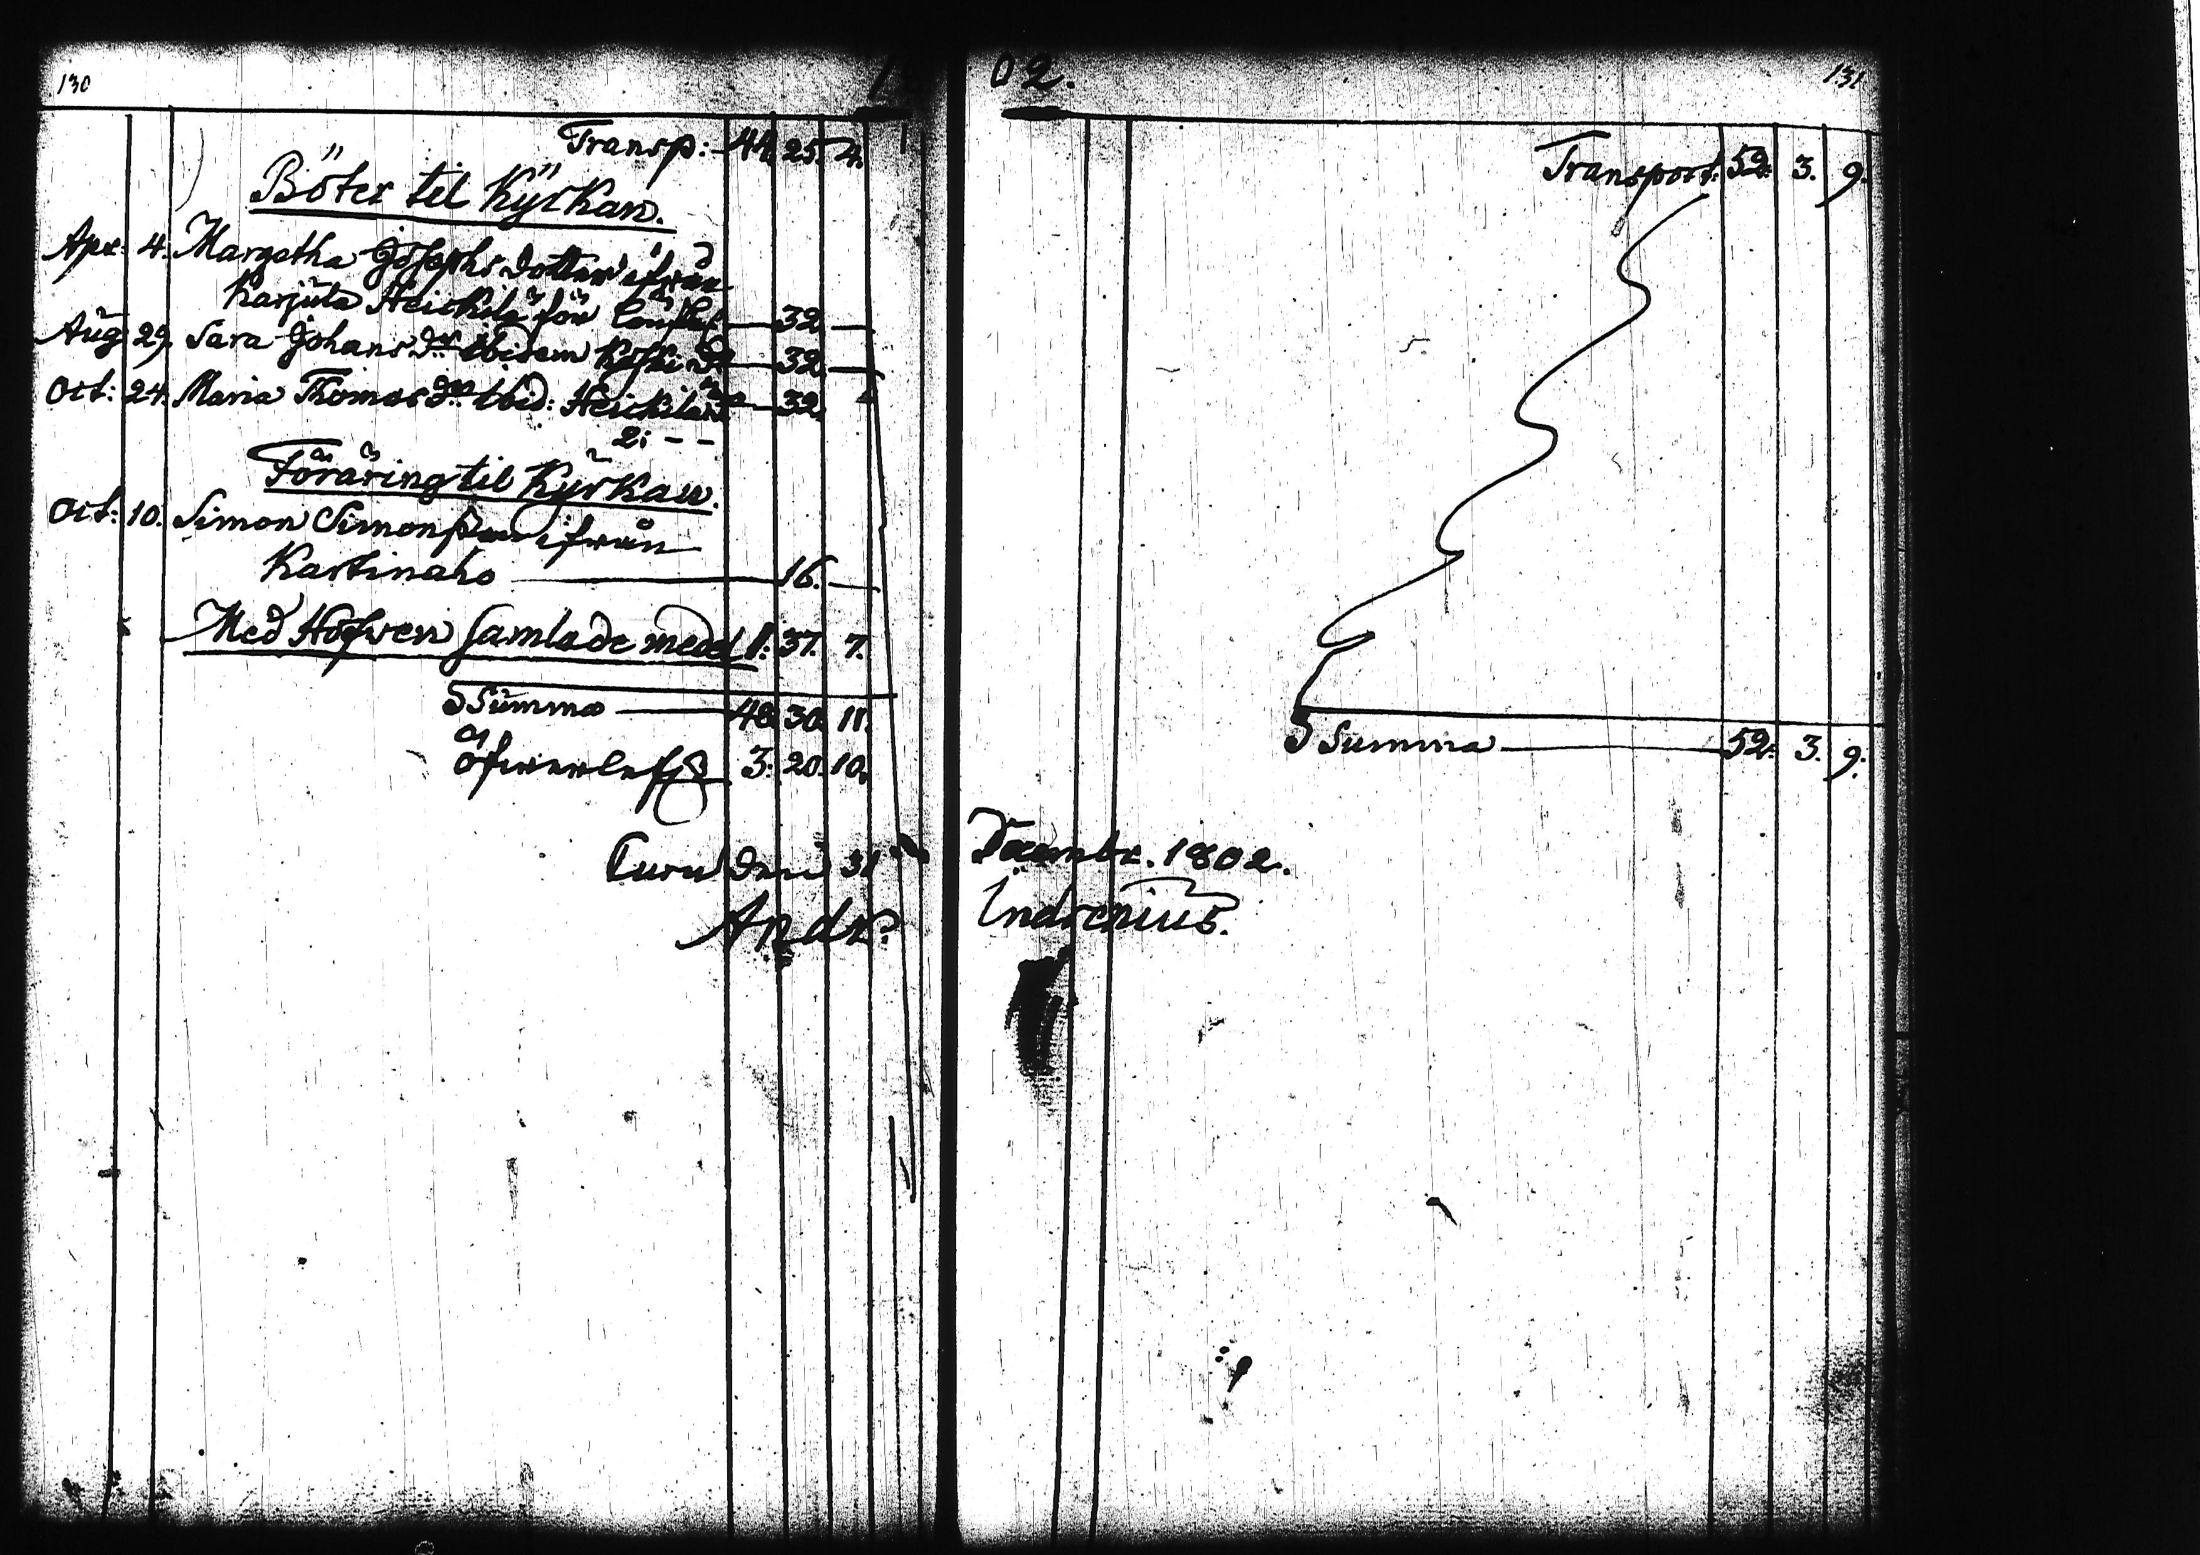 130
Transp: 44. 25. 4.
Böter til Kÿrkan.
Apr: 4. Margetha Josephs dotter ifrån
Karjula Heickilä för 32. —
Aug 29. Sara Johans dr ibidem 32. —
Oct: 24. Maria Thomas dr ibid: Heickilä 32.
2: – –
Föräring til Kÿrkan.
Oct: 10. Simon Simonsson ifrån
Kartinaho — 16. —
Med Håfwen samlade medel 1: 37. 7.
Summa — 48. 30. 11.
3: 20. 10.
Curu den 31
Andr.
02.
131
Transport: 52: 3. 9.
Summa — 52: 3. 9.
Decembr. 1802.
Indrenius.